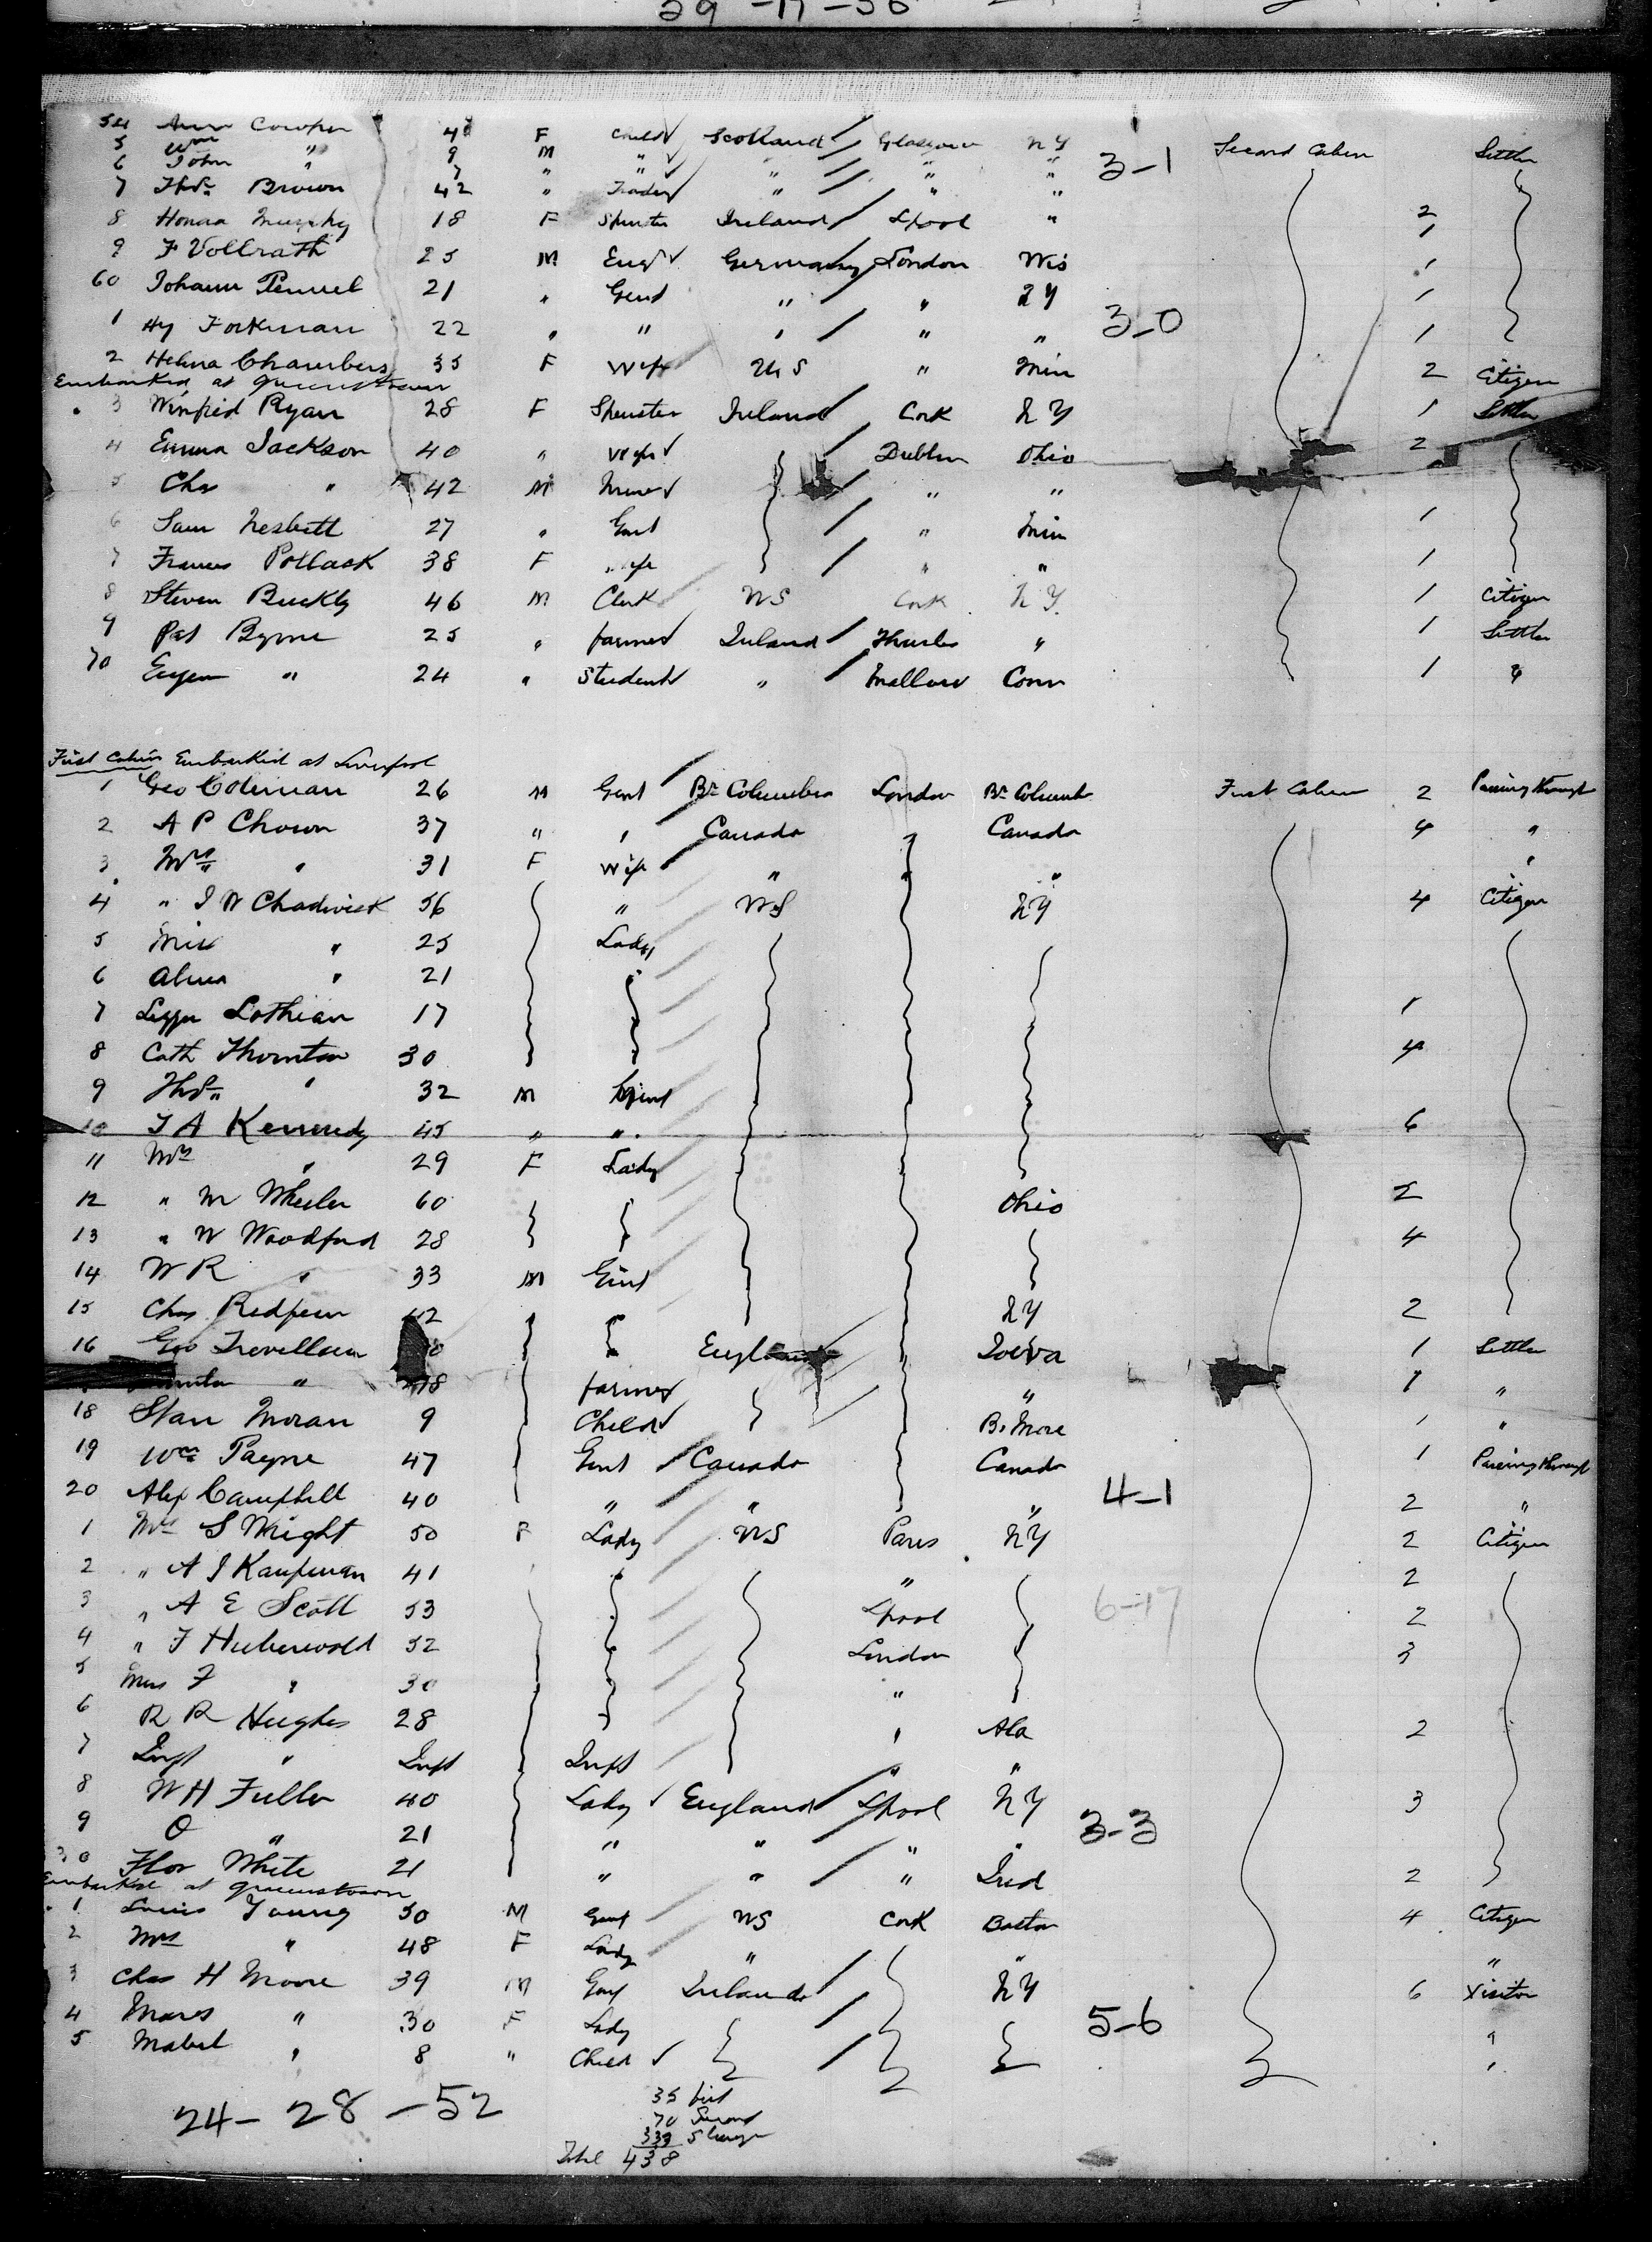 29-17-56
54 Ann Cowper 4 F Child Scotland Glasgow NY Second Cabin Settler
5 Wm " 9 M " " " " 3-1
6 John " 7 " " " " "
7 Thos Brown 42 " Trader " " "
8 Honora Murphy 18 F Spinster Ireland Lpool " 2
9 F Vollrath 25 M Engr Germany London Wis 1
60 Johann 21 " Gent " " NY 1
1 Hy Forkman 22 " " " " " 3-0 1
2 Helena Chambers 35 F Wife US " Min 2 Citizen
Embarked at Queenstown
3 Winfred Ryan 28 F Spinster Ireland Cork NY 1 Settler
4 Emma Jackson 40 " Wife Dublin Ohio 2
5 Chas " 42 M Miner " "
6 Sam Nesbitt 27 " Gent " Min 1
7 Frances Pollack 38 F Wife " " 1
8 Steven Buckly 46 M Clerk US Cork NY 1 Citizen
9 Pat Byrne 25 " farmer Ireland Thurles " 1 Settler
70 Eugen " 24 " Student " Mallow Conn 1 "
First Cabin Embarked at Liverpool
1 Geo Coleman 26 M Gent Br Columbia London Br Columb First Cabin 2 Passing through
2 A P Chown 37 " " Canada Canada 4 "
3 Mrs " 31 F Wife " " "
4 " J W Chadwick 56 " US NY 4 Citizen
5 Miss " 25 Lady
6 Alma " 21
7 Lothian 17 1
8 Cath Thornton 30 4
9 Thos " 32 M Gent
10 J A Kennedy 45 " " 6
11 Mrs " 29 F Lady
12 " M Wheeler 60 Ohio 2
13 " W Woodford 28 4
14 W R " 33 M Gent
15 Chas Redfern 42 NY 2
16 Geo England Iowa 1 Settler
" 18 farmer " 1 "
18 Stan Moran 9 Child B. More 1 "
19 Wm Payne 47 Gent Canada Canada 1 Passing through
20 Alex Campbell 40 " " " 4-1 2 "
1 Mrs S Wright 50 F Lady US Paris NY 2 Citizen
2 " A J Kaufman 41 " 2
3 " A E Scott 53 Lpool 6-17 2
4 " F 52 London 3
5 Miss F " 30 "
6 R R Hughes 28 " Ala 2
7 Inft " Inft Inft " "
8 W H Fuller 40 Lady England Lpool NY 3
9 O " 21 " " " " 3-3
30 Flor White 21 " " " Ind 2
Embarked at Queenstown
1 Louis Young 50 M Gent US Cork Boston 4 Citizen
2 Mrs " 48 F Lady " " "
3 Chas H Moore 39 M Gent Ireland NY 6 Visitor
4 " 30 F Lady 5-6 "
5 Mabel " 8 " Child "
24-28-52
35 first
70 Second
333 Steerage
Total 438